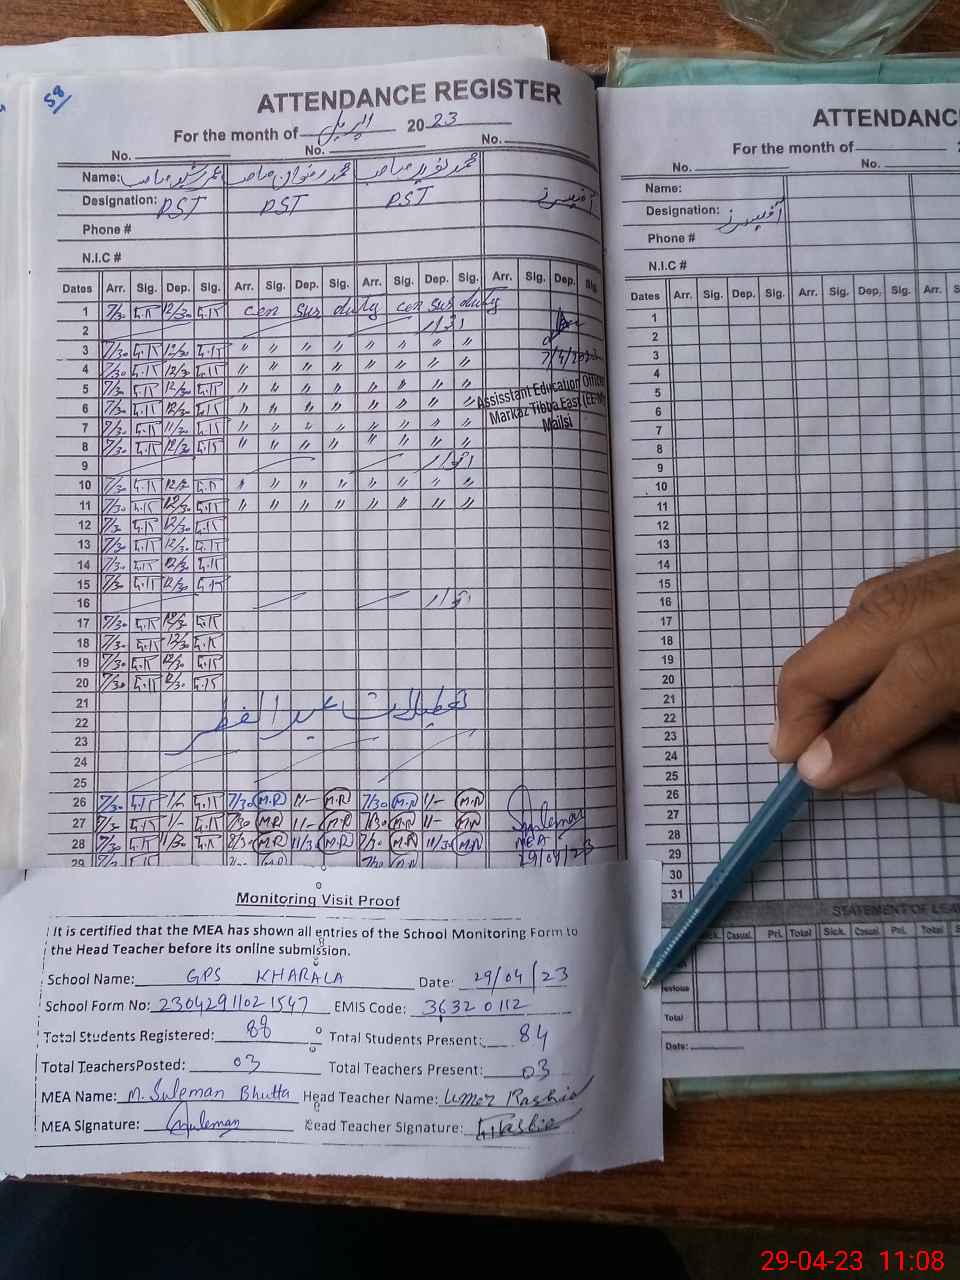 58
ATTENDANCE REGISTER
For the month of اپریل 2023
No. No. No.
Name: عمر رشید صاحب محمد رضوان صاحب محمد نوید صاحب
Designation: PST PST PST آفیسرز
Phone #
N.I.C #
Dates Arr. Sig. Dep. Sig. Arr. Sig. Dep. Sig. Arr. Sig. Dep. Sig. Arr. Sig. Dep. Sig.
1 7/30 12/30 cen sus duty cen sus duty
2 اتوار
3 7/30 12/30 " " " " " " " "
4 7/30 12/30 " " " " " " " "
5 7/30 12/30 " " " " " " " "
6 7/30 12/30 " " " " " " " "
7 7/30 11/30 " " " " " " " "
8 7/30 12/30 " " " " " " " "
Assisstant Education Officer
Markaz Tibba East (EE-M)
Mailsi
9 اتوار
10 7/30 12/30 " " " " " " " "
11 7/30 12/30 " " " " " " " "
12 7/30 12/30
13 7/30 12/30
14 7/30 12/30
15 7/30 12/30
16 اتوار
17 7/30 12/30
18 7/30 12/30
19 7/30 12/30
20 7/30 12/30
21
22 تعطیلات عید الفطر
23
24
25
26 7/30 1/- 7/30 M.R 1/- M.R 7/30 M.N 1/- M.N
27 7/30 1/- 7/30 M.R 1/- M.R 7/30 M.N 1/- M.N
28 7/30 11/30 7/30 M.R 11/30 M.R 7/30 M.N 11/30 M.N
Suleman
MEA
29/04/23
29 7/30
ATTENDANCE
For the month of
No. No.
Name:
Designation: آفیسرز
Phone #
N.I.C #
Dates Arr. Sig. Dep. Sig. Arr. Sig. Dep. Sig. Arr.
1
2
3
4
5
6
7
8
9
10
11
12
13
14
15
16
17
18
19
20
21
22
23
24
25
26
27
28
29
30
31
STATEMENT OF LEA
Casual. Pri. Total Sick. Casual. Pri. Total
Total
Date:
Monitoring Visit Proof
It is certified that the MEA has shown all entries of the School Monitoring Form to
the Head Teacher before its online submission.
School Name: GPS KHARALA Date: 29/04/23
School Form No: 23042911021547 EMIS Code: 36320112
Total Students Registered: 88 Total Students Present: 84
Total TeachersPosted: 03 Total Teachers Present: 03
MEA Name: M. Suleman Bhutta Head Teacher Name: Umer Rashid
MEA Signature: Suleman Head Teacher Signature: Rashid
29-04-23 11:08